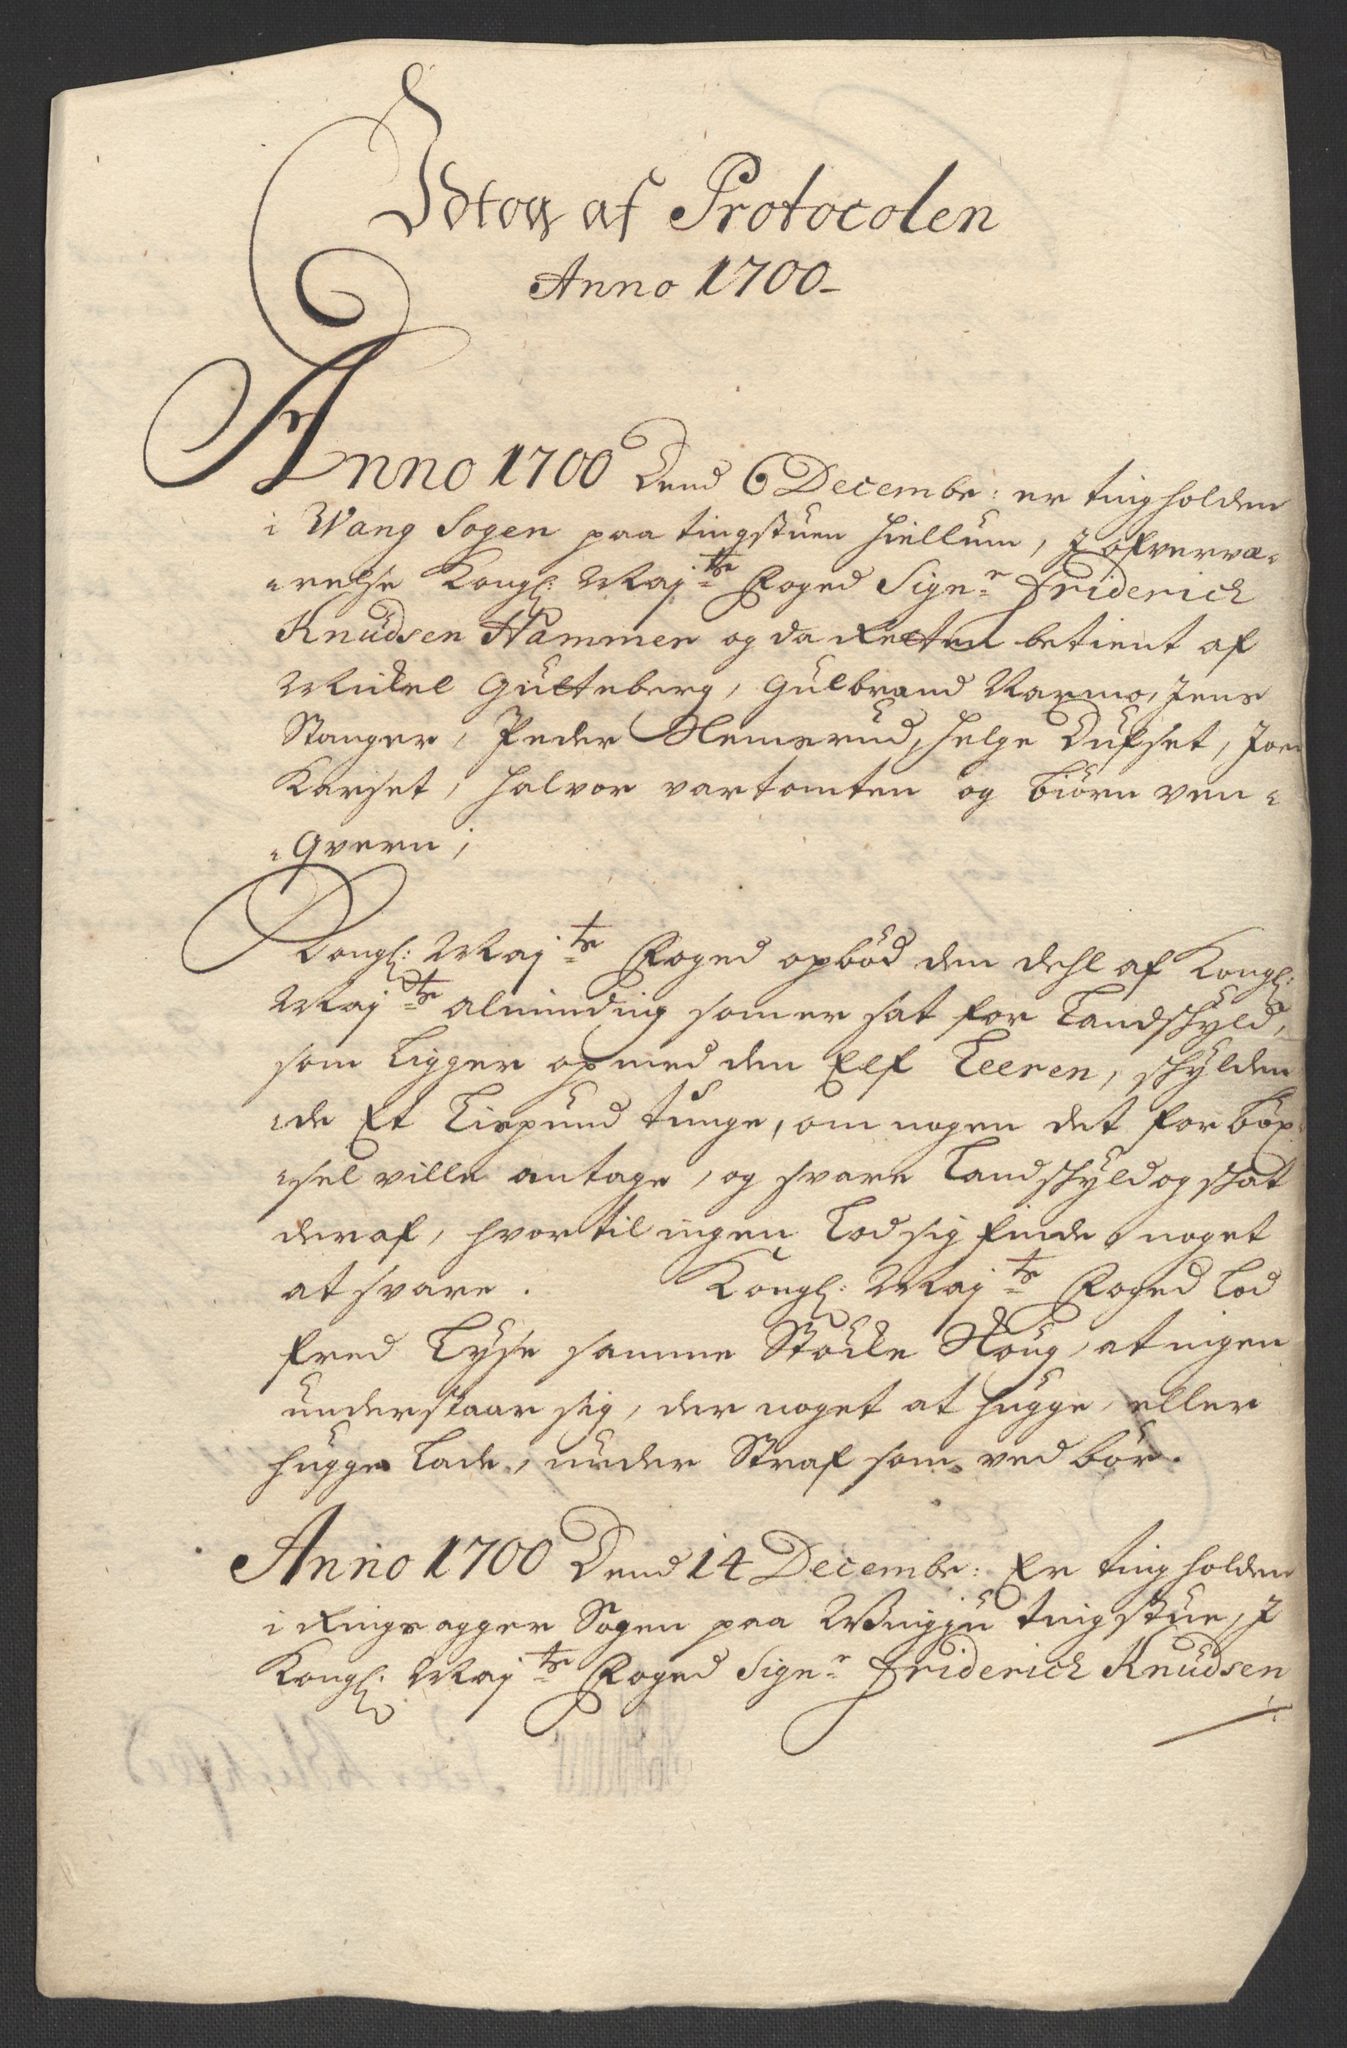 Udtog af Protocolen
Anno 1700
Anno 1700 Dend 6 Decembr: er ting holden
i Wang Sogen paa tingstuen hiellum, J ofverwæ-
-relse Kongl: Maj:ts Foged Sign:r Friderich
Knudsen Hammer og da Retten betient af
Mickel Gulteberg, Gulbrand Narmo, Jens
Stanger, Peder Hemsrud, helge Dufset, Joen
Karset, halvor vartomten og biørn ven-
-qvern;
Kongl: Maj:ts Foged opbød den dehl af Kongl:
Maj:ts alminding som er sat for Landschyld,
som Ligger op med den Elf Leeren, schylden
-de Et Lispund tunge, om nogen det for böx-
-sel ville antage, og svare Landschyld og schat
deraf, hvortil ingen Lod sig finde noget
at svare. Kongl: Maj:ts Foged Lod
fred Lyse samme Støcke Skoug, at ingen
understaar sig, der noget at hugge, eller
hugge Lade, under Straf som ved bör.
Anno 1700 Dend 14 Decembr: Er ting holden
i Ringsagger Sogen paa tingstue, J
Kongl: Maj:ts Foged Sign:r Friderich Knudsen